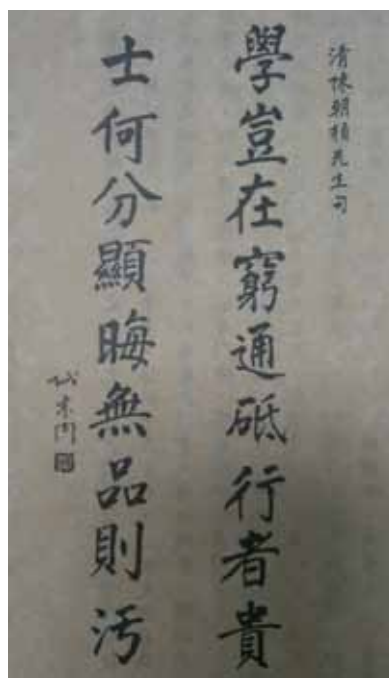 清陳朝楨先生句
學豈在窮通砥行者貴
士何分顯晦無品則污